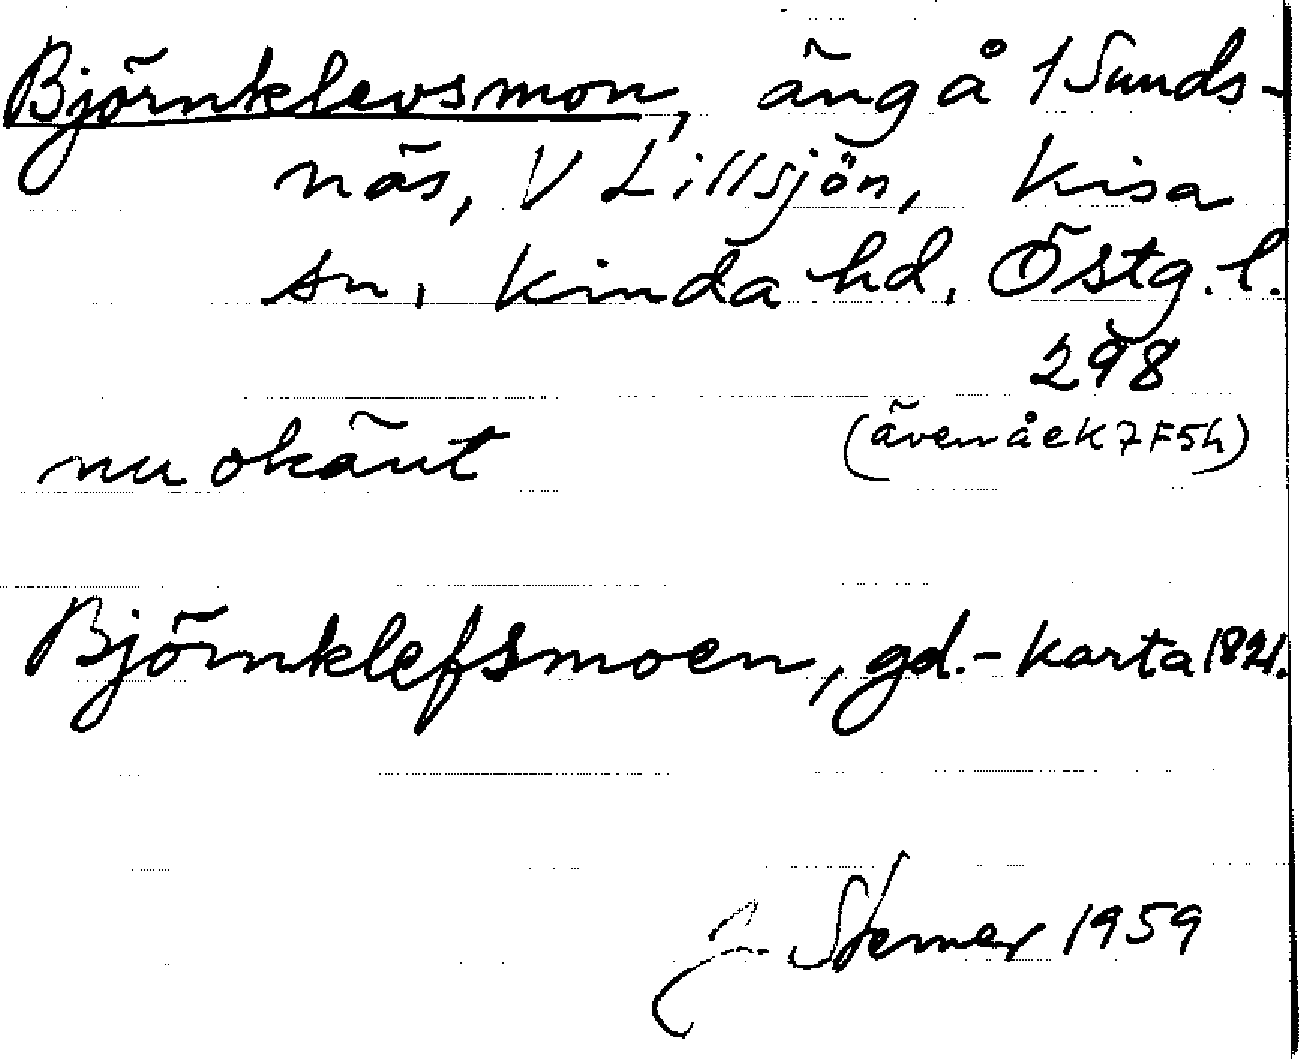 Björnklevsmon, äng å 1 Sunds-
näs, V Lillsjön, Kisa
sn, Kinda hd. Östg. l.
298
(även å ek 7F5h)
nu okänt
Björnklefsmoen, gd. - karta 1821.
J Sterner 1959